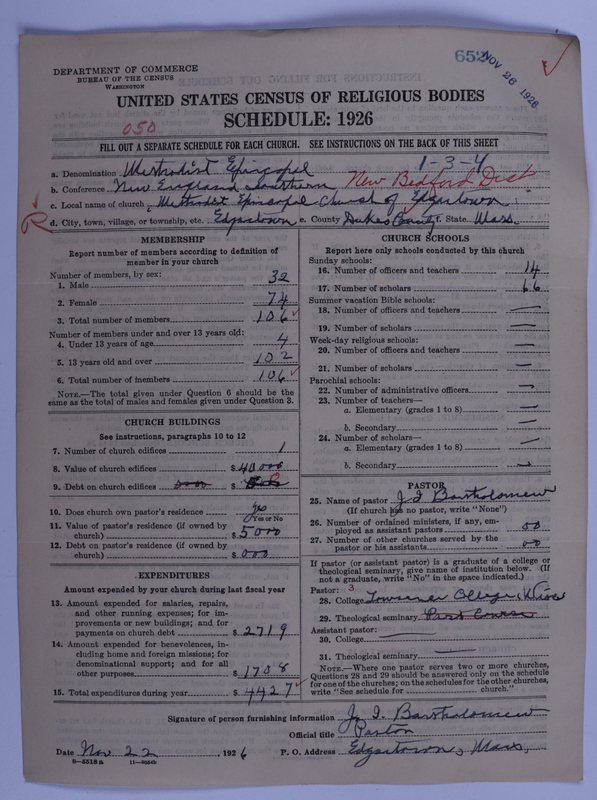 652
NOV 26 1926
DEPARTMENT OF COMMERCE
BUREAU OF THE CENSUS
WASHINGTON
UNITED STATES CENSUS OF RELIGIOUS BODIES
050
SCHEDULE: 1926
FILL OUT A SEPARATE SCHEDULE FOR EACH CHURCH. SEE INSTRUCTIONS ON THE BACK OF THIS SHEET
1-3-4
a. Denomination Methodist Episcopal
b. Conference New England Southern New Bedford Dist
c. Local name of church Methodist Episcopal Church of Edgartown
d. City, town, village, or township, etc. Edgartown e. County Dukes County f. State Mass.
MEMBERSHIP
Report number of members according to definition of
member in your church
Number of members, by sex:
1. Male 32
2. Female 74
3. Total number of members 106
Number of members under and over 13 years old:
4. Under 13 years of age 4
5. 13 years old and over 102
6. Total number of members 106
NOTE.—The total given under Question 6 should be
same as the total of males and females given under Question 3.
CHURCH BUILDINGS
See instructions, paragraphs 10 to 12
7. Number of church edifices 1
8. Value of church edifices $ 40000
9. Debt on church edifices $
10. Does church own pastor's residence yes
Yes or No
11. Value of pastor's residence (if owned by
church) $ 5000
12. Debt on pastor's residence (if owned by
church) $ 000
EXPENDITURES
Amount expended by your church during last fiscal year
13. Amount expended for salaries, repairs,
and other running expenses; for im-
provements or new buildings; and for
payments on church debt $ 2719
14. Amount expended for benevolences, in-
cluding home and foreign missions; for
denominational support; and for all
other purposes $ 1708
15. Total expenditures during year $ 4427
CHURCH SCHOOLS
Report here only schools conducted by this church
Sunday schools:
16. Number of officers and teachers 14
17. Number of scholars 66
Summer vacation Bible schools:
18. Number of officers and teachers —
19. Number of scholars —
Week-day religious schools:
20. Number of officers and teachers —
21. Number of scholars —
Parochial schools:
22. Number of administrative officers —
23. Number of teachers—
a. Elementary (grades 1 to 8) —
b. Secondary —
24. Number of scholars—
a. Elementary (grades 1 to 8) —
b. Secondary —
PASTOR
25. Name of pastor J. I. Bartholomew
(If church has no pastor, write "None")
26. Number of ordained ministers, if any, em-
ployed as assistant pastors 00
27. Number of other churches served by the
pastor or his assistants 00
If pastor (or assistant pastor) is a graduate of a college or
theological seminary, give name of institution below. (If
not a graduate, write "No" in the space indicated.)
Pastor: 3
28. College
29. Theological seminary Post Course
Assistant pastor:
30. College —
31. Theological seminary —
NOTE.—Where one pastor serves two or more churches,
Questions 28 and 29 should be answered only on the schedule
for one of the churches; on the schedules for the other churches,
write "See schedule for church."
Signature of person furnishing information J. I. Bartholomew
Official title Pastor
Date Nov 22, 1926 P. O. Address Edgartown, Mass.